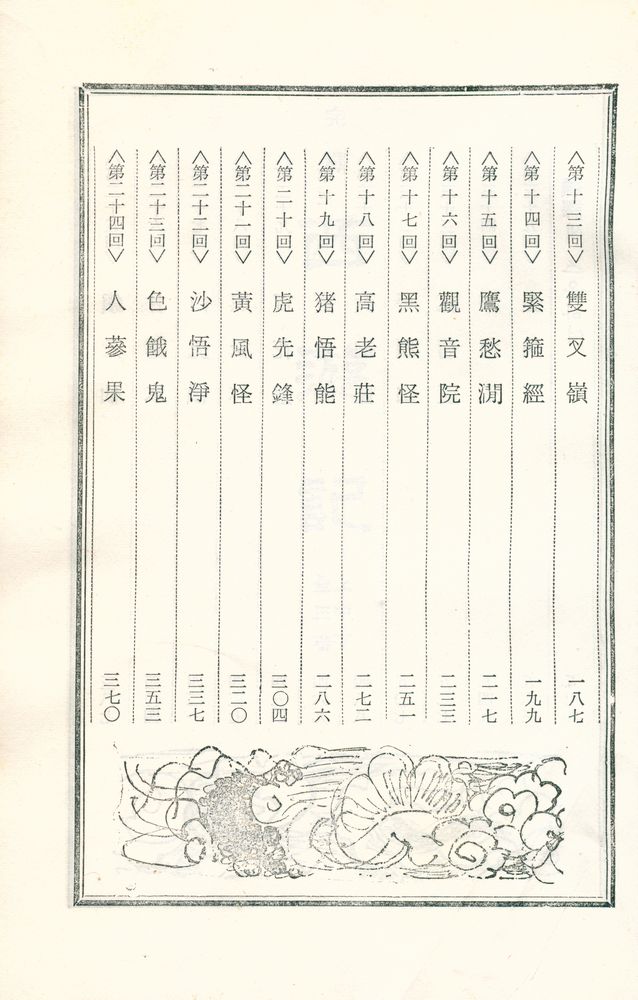 〈第十三回〉 雙叉嶺 一八七
〈第十四回〉 緊箍經 一九九
〈第十五回〉 鷹愁澗 二一七
〈第十六回〉 觀音院 二三三
〈第十七回〉 黑熊怪 二五一
〈第十八回〉 高老莊 二七二
〈第十九回〉 猪悟能 二八六
〈第二十回〉 虎先鋒 三〇四
〈第二十一回〉 黃風怪 三二〇
〈第二十二回〉 沙悟淨 三三七
〈第二十三回〉 色餓鬼 三五三
〈第二十四回〉 人蔘果 三七〇